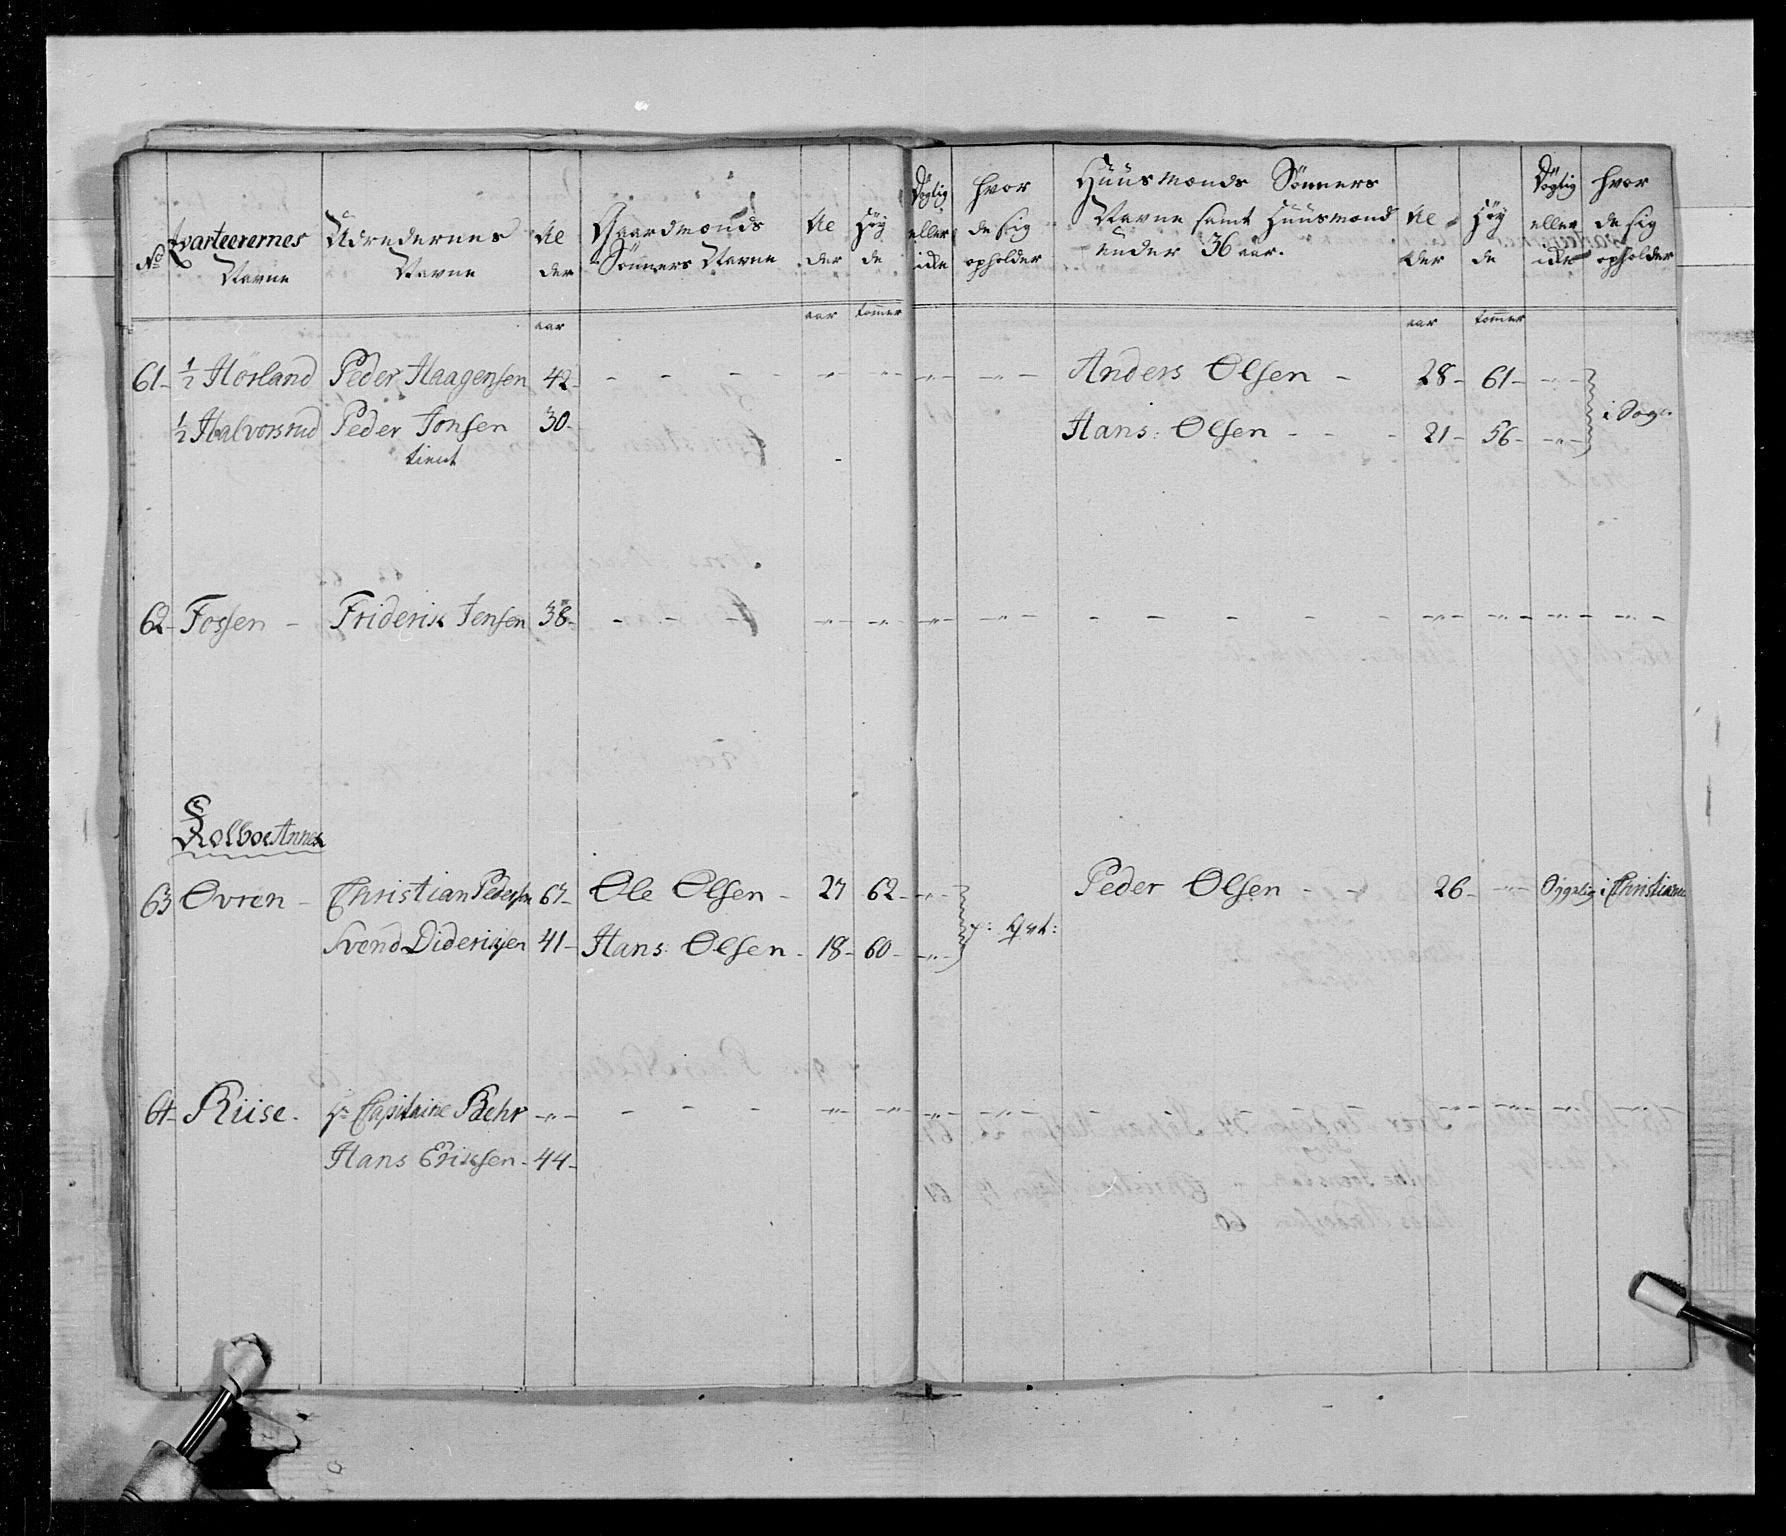 No Qvarteerernes Navne | Opsidernes Navne | Al der | Gaardmænds Sönners Navne | Al der | Höy de | Dögtig eller ikke | hvor de sig opholder | Huusmænds Sönners Navne samt Huusmænd under 36 aar. | Al der | Höy de | Dögtig eller ikke | hvor de sig opholder
aar | aar | tommer | aar | tommer
61 - 1/2 Horland | Peder Haagensen | 42 - | Anders Olsen - | 28 - | 61 -
1/2 Halvorsrud | Peder Jonsen | 30 - | Hans Olsen - - - | 21 - | 56 - | i Sogn
tient
62 - Fossen - | Friderik Jensen | 38 -
Kolboe Annex
63 Ovren - | Christian Pedersen | 67 - | Ole Olsen - | 27 | 62 - | p: Qvt: | Peder Olsen - - | 26 - | i Christiania
Svend Didriksen | 41 - | Hans Olsen - | 18 - | 60 -
64 - Riise - | Hr Capitaine Behr
Hans Eriksen - | 44 -